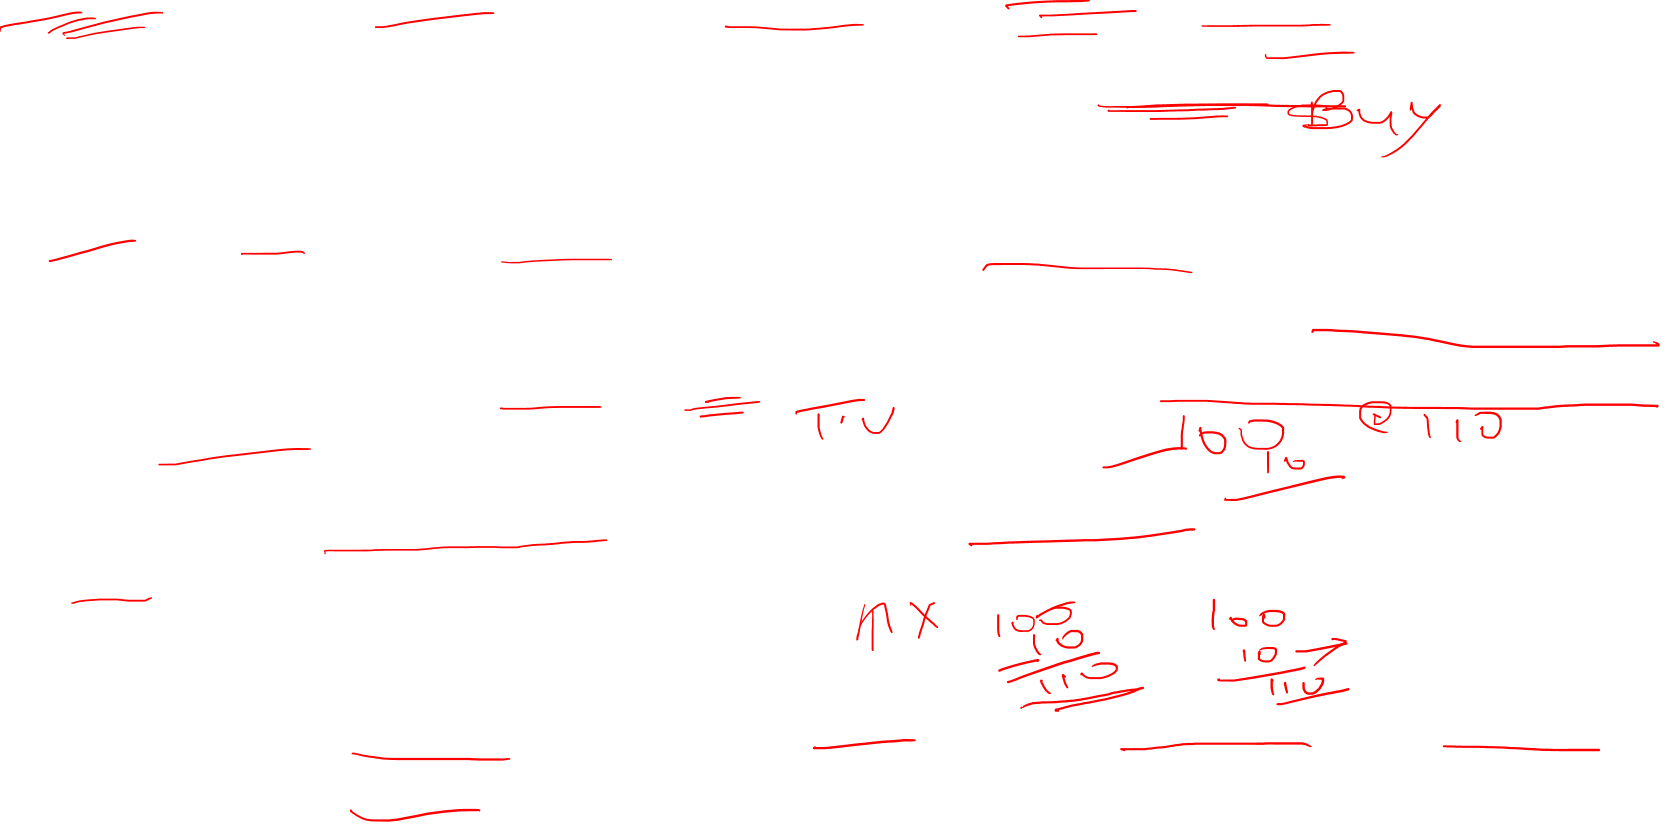 Buy
110
100 @ 110
10
↑ X 100 100
10 10 →
110 110